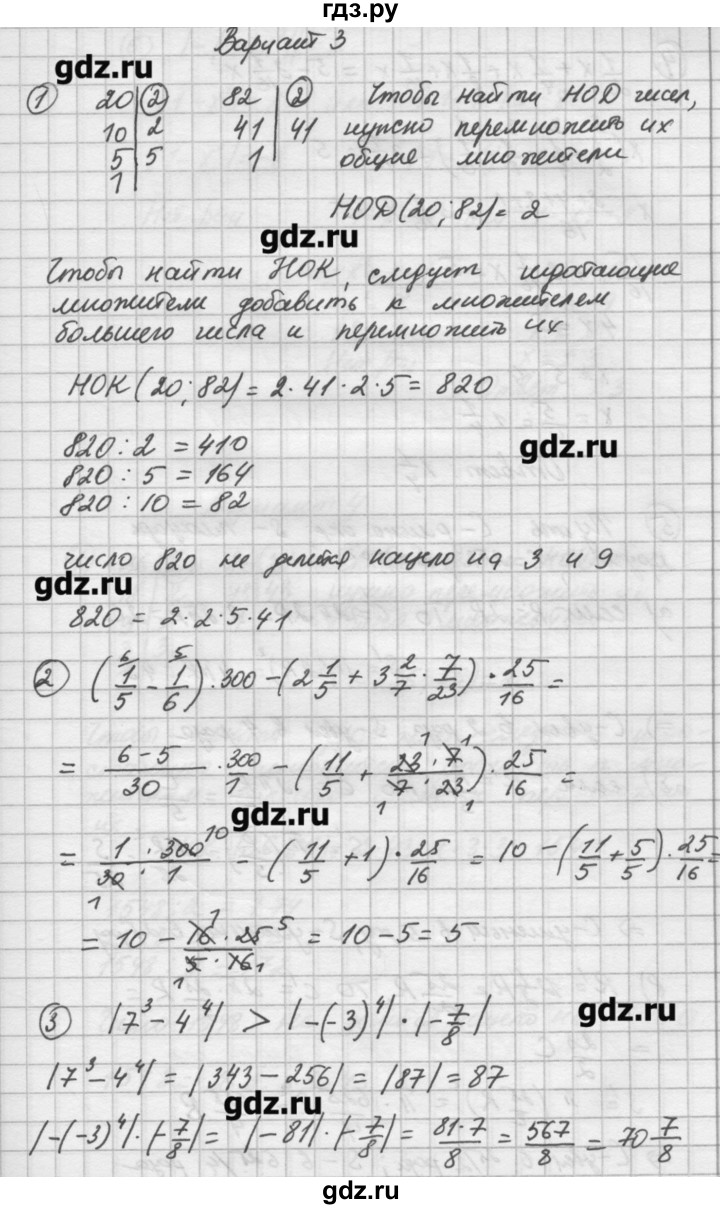 гдз.ру
Вариант 3
gdz.ru
① 20 | 2   82 | 2   Чтобы найти НОД чисел,
10 | 2   41 | 41   нужно перемножить их
5 | 5   1   общие множители
1
НОД(20;82) = 2
gdz.ru
Чтобы найти НОК, следует недостающие
множители добавить к множителем
большего числа и перемножить их
НОК(20;82) = 2·41·2·5 = 820
820 : 2 = 410
gdz.ru
820 : 5 = 164
820 : 10 = 82
число 820 не делится нацело на 3 и 9
gdz.ru
820 = 2·2·5·41
② (1/5 - 1/6)·300 - (2 1/5 + 3 2/7 · 7/23) · 25/16 =
= (6-5)/30 · 300/1 - (11/5 + (23·7)/(7·23)) · 25/16 =
gdz.ru
= (1·300)/(30·1) - (11/5 + 1) · 25/16 = 10 - (11/5 + 5/5) · 25/16 =
= 10 - (16·25)/(5·16) = 10 - 5 = 5
③ |7³ - 4⁴| > |-(-3)⁴| · |-7/8|
gdz.ru
|7³ - 4⁴| = |343 - 256| = |87| = 87
gdz.ru
|-(-3)⁴| · |-7/8| = |-81| · |-7/8| = (81·7)/8 = 567/8 = 70 7/8
gdz.ru